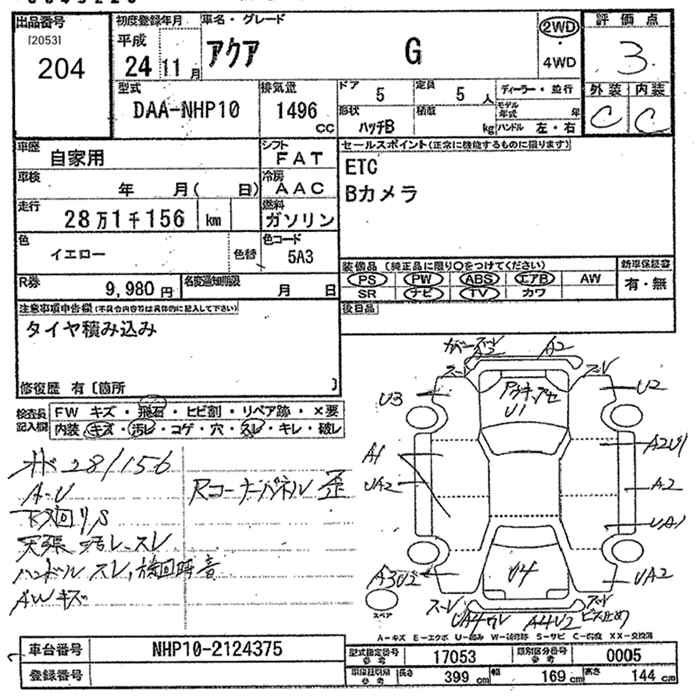 出品番号
[2053]
204
初度登録年月
平成
24 11月
車名・グレード
アクア G
2WD
・
4WD
評価点
3
外装 内装
C C
型式
DAA-NHP10
排気量
1496 cc
ドア 5
定員 5 人
形状 ハッチB
積載 kg
ディーラー・並行
モデル年式 年
ハンドル 左・右
車歴 自家用
シフト FAT
車検 年 月( 日)
冷房 AAC
走行 28万1千156 km
燃料 ガソリン
色 イエロー
色替
色コード 5A3
R券 9,980円
名変通知期限 月 日
セールスポイント(正常に機能するものに限ります)
ETC
Bカメラ
装備品(純正品に限り○をつけてください)
PS PW ABS エアB AW
SR ナビ TV カワ
新車保証書
有・無
後日品
注意事項申告欄(不具合内容等は具体的に記入して下さい)
タイヤ積み込み
修復歴 有〔箇所 〕
検査員記入欄
FW キズ・飛石・ヒビ割・リペア跡・×要
内装・キズ・汚レ・コゲ・穴・スレ・キレ・破レ
28/156
A・U
Rコーナーパネル 歪
下回りS
天張 汚レースレ
ハンドル スレ,旋回時音
AWキズ
カバースレ
A3 A2
ズレ ズレ
U3 U2
U1
A1
UA2
A2U1
A2
UA1
A3U2 UA2
U4
ズレ
UA4ワレ
A4U2
ズレ
ビス止め
スペア
A-キズ E-エクボ U-凹み W-補修跡 S-サビ C-腐蝕 XX-交換済
車台番号 NHP10-2124375
登録番号
型式指定番号 参考 17053
類別区分番号 参考 0005
長さ 399 cm 幅 169 cm 高さ 144 cm